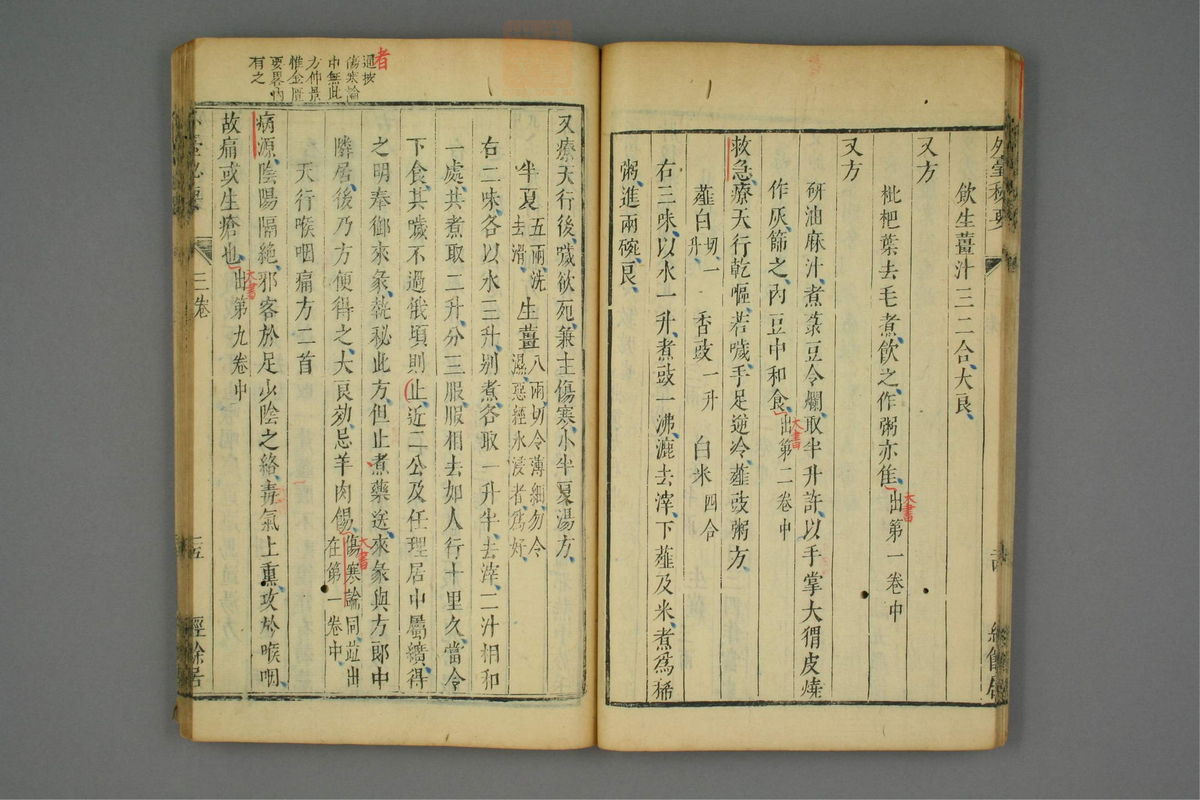 外臺秘要
飲生薑汁三二合大良
又方
枇杷葉去毛煮飲之作粥亦隹
出第一卷中
大書
又方
研油麻汁煮菉豆令爛取半升許以手掌大猬皮燒
作灰篩之內豆中和食
出第二卷中
大書
救急療天行乾嘔若噦手足逆冷薤豉粥方
薤白切一升 香豉一升 白米四合
右三味以水一升煮豉一沸漉去滓下薤及米煮爲稀
粥進兩碗良
又療天行後噦欲死兼主傷寒小半夏湯方
半夏五兩洗去滑 生薑八兩切令薄細勿令濕惡經水浸者爲好
右二味各以水三升別煮各取一升半去滓二汁相和
一處共煮取二升分三服服相去如人行十里久當令
下食其噦不過俄頃則止近二公及任理居中屬纊得
之明奉御來彖執秘此方但止煮藥送來彖與方郎中
隣居後乃方便得之大良効忌羊肉餳
傷寒論同並出在第一卷中
大書
天行喉咽痛方二首
病源陰陽隔絶邪客於足少陰之絡毒氣上熏攻於喉咽
故痛或生瘡也
出第九卷中
大書
者
週按
傷寒論
中無此
方仲景
惟金匱
要畧內
有之
三卷
二五
經餘居